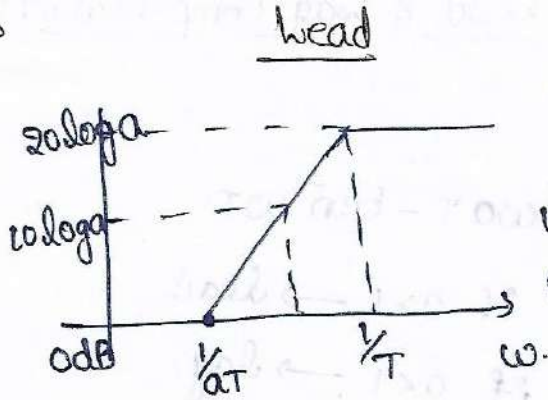 Lead
20 log a
10 log a
0dB
1/aT
1/T
ω